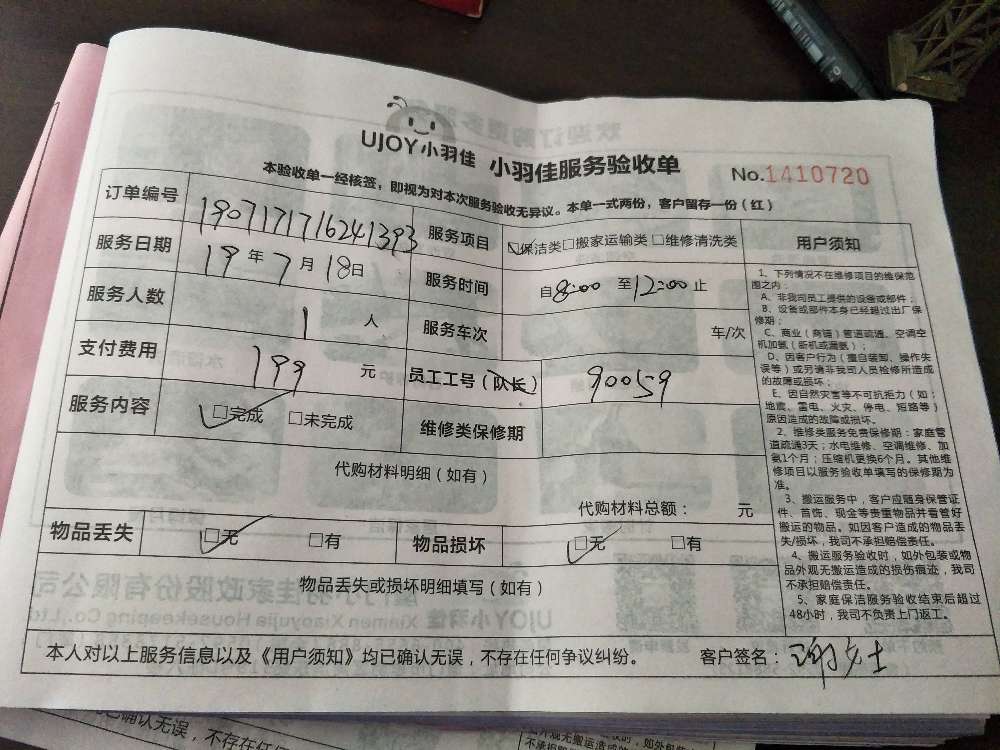 UJOY小羽佳 小羽佳服务验收单
No.1410720
本验收单一经核签，即视为对本次服务验收无异议。本单一式两份，客户留存一份（红）
订单编号 19071717162413​93 服务项目 保洁类□搬家运输类□维修清洗类
服务日期 19年7月18日 服务时间 自8:00 至12:00止
服务人数 1 人 服务车次 车/次
支付费用 199 元 员工工号（队长） 90059
服务内容 □完成 □未完成 维修类保修期
代购材料明细（如有）
代购材料总额： 元
物品丢失 □无 □有 物品损坏 □无 □有
物品丢失或损坏明细填写（如有）
用户须知
1、下列情况不在维修项目的维保范
围之内：
A、非我司员工提供的设备或部件；
B、设备或部件本身已经超过出厂保
修期；
C、商业（商铺）管道疏通、空调空
机加氨（新机或漏氨）；
D、因客户行为（擅自装卸、操作失
误等）或另请非我司人员检修所造成
的故障或损坏；
E、因自然灾害等不可抗拒力（如：
地震、雷电、火灾、停电、短路等）
原因造成的故障或损坏。
2、维修类服务免费保修期：家庭管
道疏通3天；水电维修、空调维修、加
氨1个月；压缩机更换6个月。其他维
修项目以服务验收单填写的保修期为
准。
3、搬运服务中，客户应随身保管证
件、首饰、现金等贵重物品并看管好
搬运的物品。如因客户造成的物品丢
失/损坏，我司不承担赔偿责任。
4、搬运服务验收时，如外包装或物
品外观无搬运造成的损伤痕迹，我司
不承担赔偿责任。
5、家庭保洁服务验收结束后超过
48小时，我司不负责上门返工。
本人对以上服务信息以及《用户须知》均已确认无误，不存在任何争议纠纷。 客户签名：谢女士